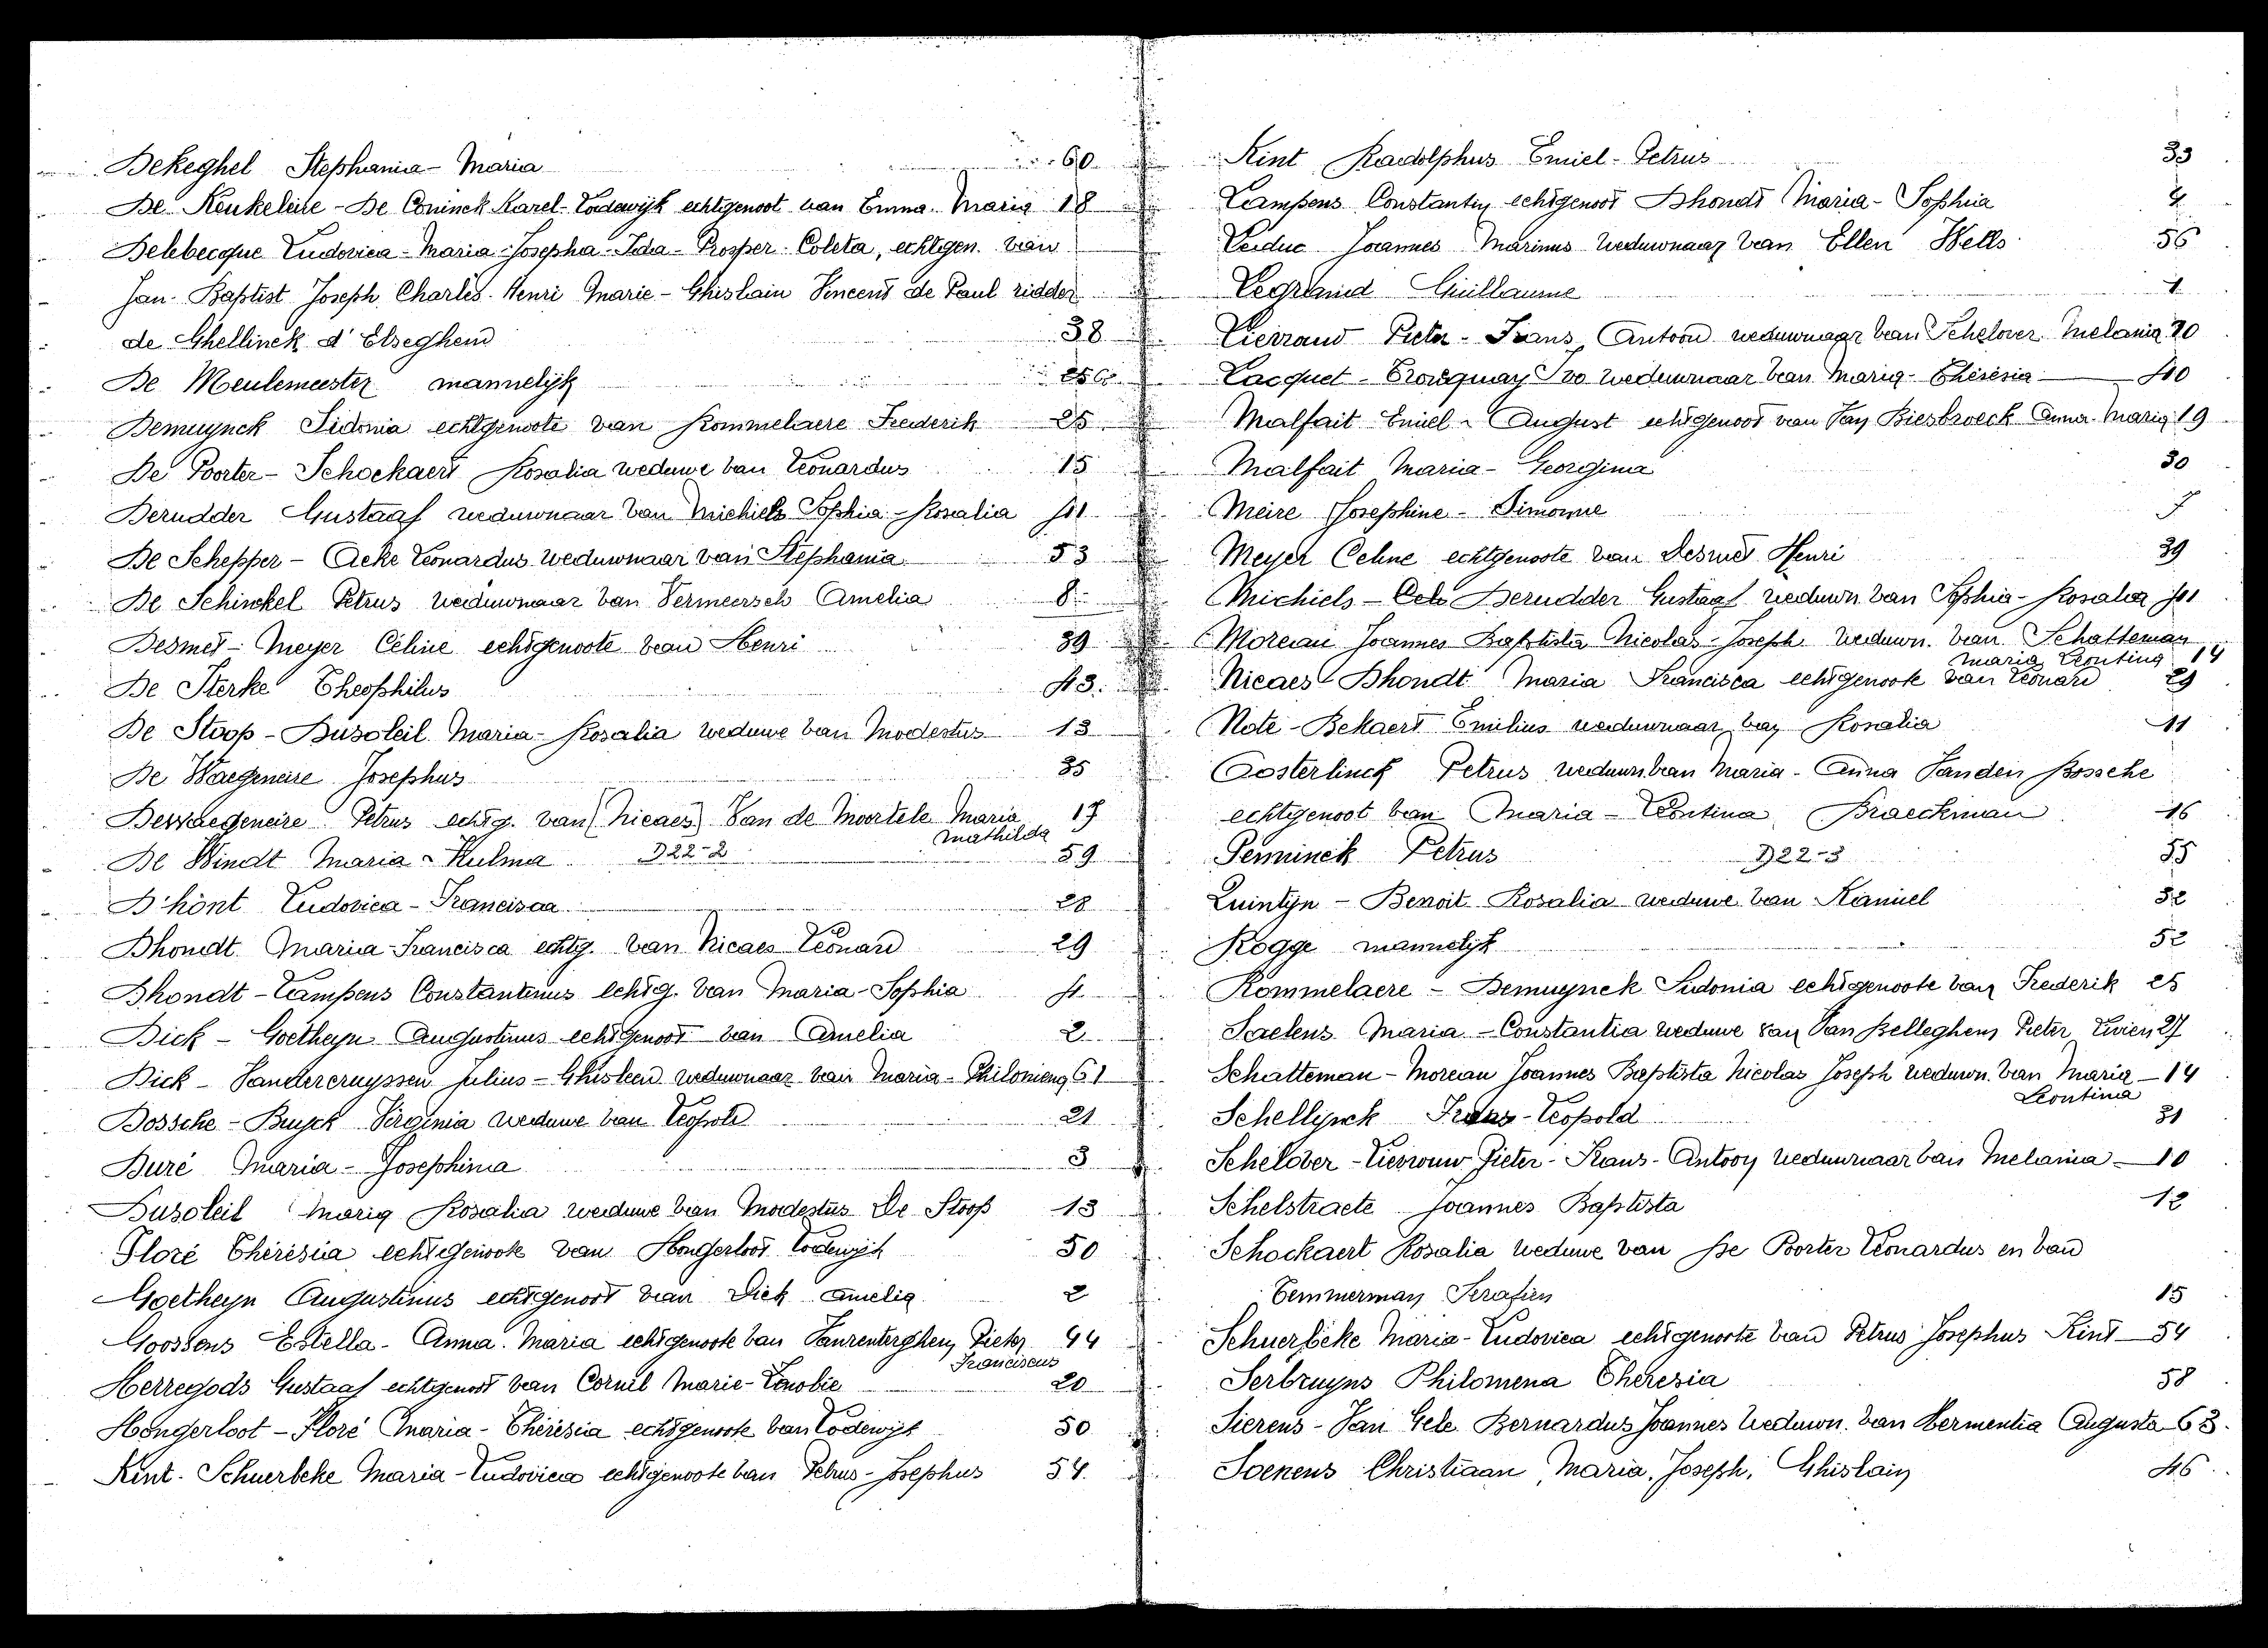 Dekeghel Stephania - Maria 60
De Keukeleire - De Coninck Karel - Lodewijk echtgenoot van Emma - Maria 18
Delebecque Ludovica - Maria - Josepha - Ida - Prosper - Coleta, echtgen. van
Jan - Baptist Joseph Charles Henri Marie - Ghislain Vincent de Paul ridder
de Ghellinck d'Elseghem 38
De Meulemeester mannelijk
Demuynck Sidonia echtgenoote van Rommelaere Frederik 25
De Poorter - Schockaert Rosalia weduwe van Leonardus 15
Derudder Gustaaf weduwnaar van Michiels Sophia - Rosalia 41
De Schepper - Acke Leonardus weduwnaar van Stephania 53
De Schinckel Petrus weduwnaar van Vermeersch Amelia 8
Desmet - Meyer Céline echtgenoote van Henri 39
De Sterke Theophilus 43
De Stoop - Dusoleil Maria - Rosalia weduwe van Modestus 13
De Waegeneire Josephus 35
Dewaegeneire Petrus echtg. van (Nicaes) Van de Moortele Maria 17
Mathilda
De Windt Maria - Hulma D22-2 59
D'hont Ludovica - Francisca 28
Dhondt Maria - Francisca echtg. van Nicaes Leonard 29
Dhondt - Lampens Constantinus echtg. van Maria - Sophia 4
Dick - Goetheyn Augustinus echtgenoot van Amelia 2
Dick - Vandercruyssen Julius - Ghisleen weduwnaar van Maria - Philomena 61
Dossche - Bruyck Virginia weduwe van Leopold 21
Duré Maria - Josephina 3
Dusoleil Maria Rosalia weduwe van Modestus De Stoop 13
Floré Thérésia echtgenoote van Hongerloot Lodewijk 50
Goetheyn Augustinus echtgenoot van Dick Amelia 2
Goossens Estella - Anna - Maria echtgenoote van Vanrenterghem Pieter 44
Franciscus
Herregods Gustaaf echtgenoot van Cornil Marie - Zenobie 20
Hongerloot - Floré Maria - Thérésia echtgenoote van Lodewijk 50
Kint - Schuerbeke Maria - Ludovica echtgenoote van Petrus - Josephus 54
Kint Radolphus Emiel - Petrus 33
Lampens Constantin echtgenoot Dhondt Maria - Sophia 4
Leduc Joannes Marinus weduwnaar van Ellen Wells 56
Legrand Guillaume 1
Lierrand Pieter - Frans, Antoon weduwnaar van Schelover Melania 10
Locquet - Trouquay Ivo weduwnaar van Maria - Thérésia 40
Malfait Emiel - August echtgenoot van Van Biesbroeck Anna - Maria 19
Malfait Maria - Georgina 30
Meire Josephine - Simonne 7
Meyer Celine echtgenoote van Desmet Henri 39
Michiels - Derudder Gustaaf weduwn. van Sophia - Rosalia 41
Moreau Joannes Baptista Nicolas - Joseph weduwn. van Schatteman
Maria Leontina 14
Nicaes - Dhondt Maria Francisca echtgenoote van Leonard 29
Note - Bekaert Emilius weduwnaar van Rosalia 11
Oosterlinck Petrus weduwn. van Maria - Anna Vanden Bossche
echtgenoot van Maria - Leontina Braeckman 16
Penninck Petrus D22-3 55
Quintyn - Benoit Rosalia weduwe van Kamiel 32
Rogge mannelijk 52
Rommelaere - Demuynck Sidonia echtgenoote van Frederik 25
Saelens Maria - Constantia weduwe van Van Belleghem Pieter Livien 27
Schatteman - Moreau Joannes Baptista Nicolas Joseph weduwn. van Maria - 14
Leontina
Schellynck Frans - Leopold 31
Schelover - Lierrouw Pieter - Frans - Antoon weduwnaar van Melania - 10
Schelstraete Joannes Baptista 12
Schockaert Rosalia weduwe van De Poorter Leonardus en van
Temmerman Serafien 15
Schuerbeke Maria - Ludovica echtgenoote van Petrus Josephus Kint - 54
Serbruyns Philomena Theresia 58
Sierens - Van Gele Bernardus Joannes weduwn. van Hermentia Augusta 63.
Soenens Christiaan, Maria, Joseph, Ghislain 46